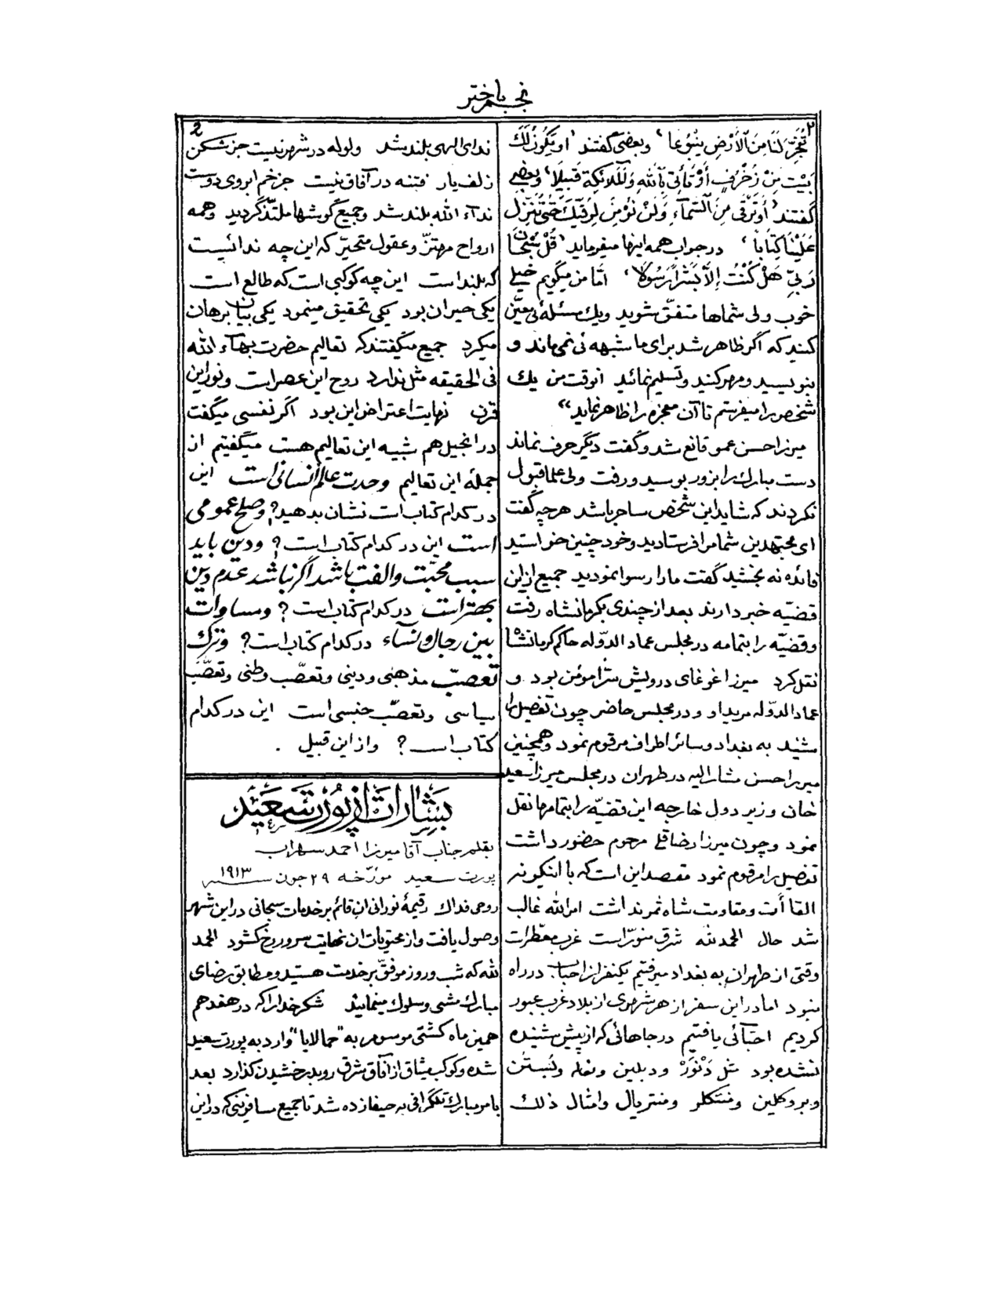 نجم باختر
۲
تُفَجِّرَ لَنَا مِنَ الْأَرْضِ يَنْبُوعاً ، وبعضى گفتند ، اَوْ يَكُونَ لَكَ
بَيْتٌ مِنْ زُخْرُفٍ اَوْ تَأْتِىَ بِاللّٰهِ وَالْمَلَائِكَةِ قَبِيلًا ، وبعضى
گفتند ، اَوْ تَرْقىٰ مِنَ السَّمَآءِ وَلَنْ نُؤْمِنَ لِرُقِيِّكَ حَتّىٰ تُنَزِّلَ
عَلَيْنَا كِتَاباً ، در جواب همه اينها ميفرمايد ، قُلْ سُبْحَانَ
رَبّىِ هَلْ كُنْتُ اِلَّا بَشَراً رَسُولًا ، امّا من ميگويم خيلى
خوب ولى شماها متفق شويد ويك مسئلهٔ معيّن
كنيد كه اگر ظاهر شد براى ما شبههٔ نمى ماند و
بنويسيد ومهر كنيد وتسليم نمائيد انوقت من يك
شخص را ميفرستم تا آن معجزه را ظاهر نمايد»
ميرزا حسن عمو قانع شد وگفت ديگر حرف نماند
دست مبارك را بزور بوسيد ورفت ولى علما قبول
نكردند كه شايد اين شخص ساحر باشد هر چه گفت
اى مجتهدين شما مرا فرستاديد وخود چنين خواستيد
فائده نه بخشيد گفت ما را رسوا نموديد جميع از اين
قضيّه خبر دارند بعد از چندى بكرمانشاه رفت
وقضيّه را بتمامه در مجلس عماد الدوله حاكم كرمانشاه
نقل كرد ميرزا غوغاى درويش سرّاً مؤمن بود و
عماد الدوله مريد او ودر مجلس حاضر چون تفصيل را
شنيد به بغداد وسائر اطراف مرقوم نمود وهمچنين
ميرزا حسن مشار اليه در طهران در مجلس ميرزا سعيد
خان وزير دول خارجه اين قضيّه را بتمامها نقل
نمود وچون ميرزا رضا قلى مرحوم حضور داشت
تفصيل را مرقوم نمود مقصد اين است كه با اينگونه
القاآت ومقاومت شاه ثمر نداشت امر اللّه غالب
شد حال الحمد للّه شرق منوّر است غرب معطّر است
وقتى از طهران به بغداد ميرفتيم يكنفر از احباب در راه
نبود اما در اين سفر از هر شهرى از بلاد غرب عبور
كرديم احبّائى يافتيم در جاهائى كه از پيش شنيده
نشده بود مثل دَنْوَرْ و دبلين وبفلو وبُستن
وبروكلين ومنتكلر ومنتريال وامثال ذلك
2
نداى الهى بلند شد ولوله در شهر نيست جز شكن
زلف يار فتنه در آفاق نيست جز خم ابروى دوست
نداء اللّه بلند شد وجميع گوشها ملتذّ گرديد وهمه
ارواح مهتزّ وعقول متحيّر كه اين چه ندائيست
كه بلند است اين چه كوكبى است كه طالع است
يكى حيران بود يكى تحقيق مينمود يكى بيان برهان
ميكرد جميع ميگفتند كه تعاليم حضرت بهآء اللّه
فى الحقيقه مثل ندارد روح اين عصر است ونور اين
قرن نهايت اعتراض اين بود اگر نفسى ميگفت
در انجيل هم شبيه اين تعاليم هست ميگفتيم از
جملهٔ اين تعاليم وحدت عالم انسانى است اين
در كدام كتاب است نشان بدهيد؟ وصلح عمومى
است اين در كدام كتاب است ؟ ودين بايد
سبب محبّت والفت باشد اگر نباشد عدم دين
بهتر است در كدام كتاب است ؟ ومساوات
بين رجال ونسآء در كدام كتاب است؟ وترك
تعصّب مذهبى ودينى وتعصّب وطنى وتعصّب
سياسى وتعصّب جنسى است اين در كدام
كتاب است ؟ واز اين قبيل .
بشارات از پورت سعيد
بقلم جناب آقا ميرزا احمد سهراب
پورت سعيد مورّخه ٢٩ جون سنه ١٩١٣
روحى فداك رقيمهٔ نورانى ان قائم بر خدمات سبحانى در اين شهر
وصول يافت واز محتويات ان نهايت سرور رخ گشود الحمد
للّه كه شب وروز موفّق بر خدمت هستيد ومطابق رضاى
مبارك مشى وسلوك مينمائيد شكر خدا را كه در هفدهم
همين ماه كشتى موسوم به "حمالايا" وارد به پورت سعيد
شده وكوكب ميثاق از آفاق شرق رو بدرخشيدن گذارد بعد
بامر مبارك تلگرافى به حيفا زده شد تا جميع مسافرينى كه در اين